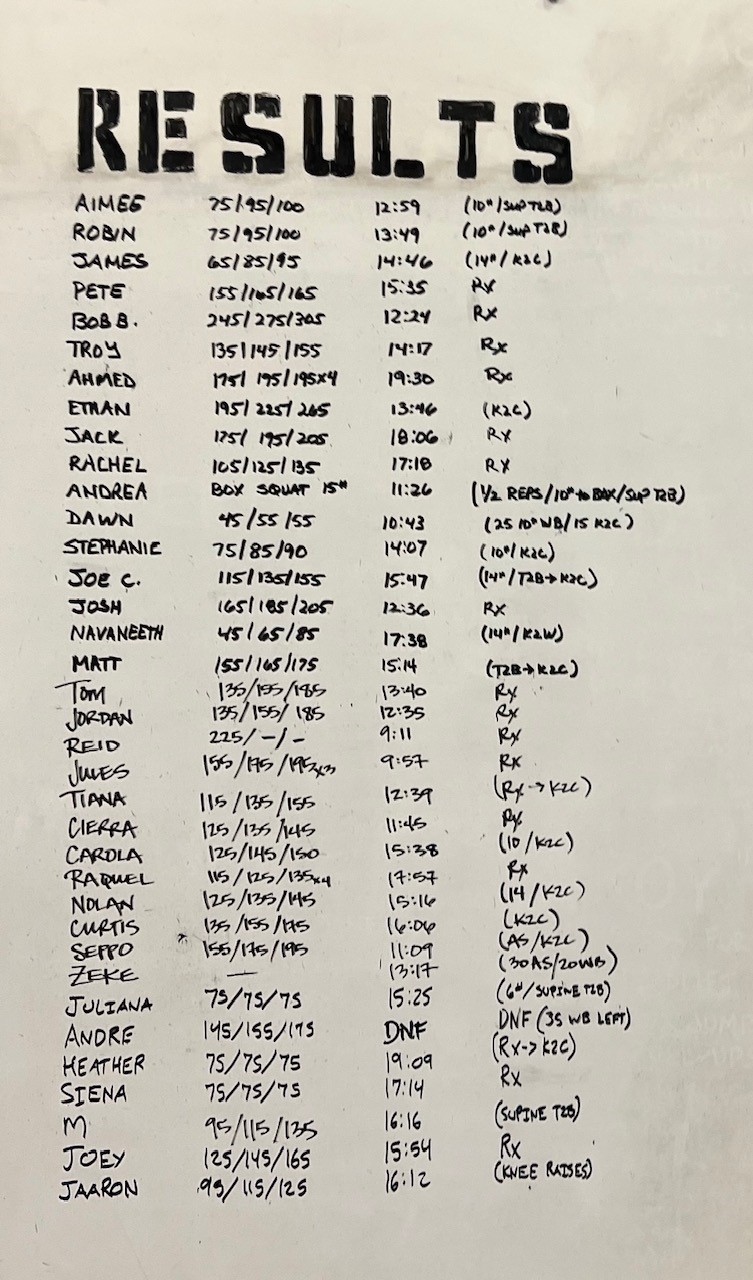 RESULTS
AIMEE 75/95/100 12:59 (10#/SUP T2B)
ROBIN 75/95/100 13:49 (10#/SUP T2B)
JAMES 65/85/95 14:46 (14#/K2C)
PETE 155/165/165 15:35 Rx
BOB B. 245/275/305 12:24 Rx
TROY 135/145/155 14:17 Rx
AHMED 175/195/195x4 19:30 Rx
ETHAN 195/225/265 13:46 (K2C)
JACK 175/195/205 18:06 RX
RACHEL 105/125/135 17:18 RX
ANDREA BOX SQUAT 15# 11:26 (1/2 REPS/10# to BOX/SUP T2B)
DAWN 45/55/55 10:43 (25 10# WB/15 K2C)
STEPHANIE 75/85/90 14:07 (10#/K2C)
JOE C. 115/135/155 15:47 (14#/T2B→K2C)
JOSH 165/185/205 12:36 Rx
NAVANEETH 45/65/85 17:38 (14#/K2W)
MATT 155/165/175 15:14 (T2B→K2C)
TOM 135/155/185 13:40 Rx
JORDAN 135/155/185 12:35 Rx
REID 225/-/- 9:11 Rx
JULES 155/175/195x3 9:57 Rx
TIANA 115/135/155 12:39 (Rx→K2C)
CIERRA 125/135/145 11:45 Rx
CAROLA 125/145/150 15:38 (10/K2C)
RAQUEL 115/125/135x4 17:57 Rx
NOLAN 125/135/145 15:16 (14/K2C)
CURTIS 135/155/175 16:06 (K2C)
SEPPO 155/175/195 11:09 (AS/K2C)
ZEKE — 13:17 (30AS/20WB)
JULIANA 75/75/75 15:25 (6#/SUPINE T2B)
ANDRE 145/155/175 DNF DNF (35 WB LEFT)
HEATHER 75/75/75 19:09 (Rx→K2C)
SIENA 75/75/75 17:14 Rx
M 95/115/135 16:16 (SUPINE T2B)
JOEY 125/145/165 15:54 Rx
JAARON 95/115/125 16:12 (KNEE RAISES)